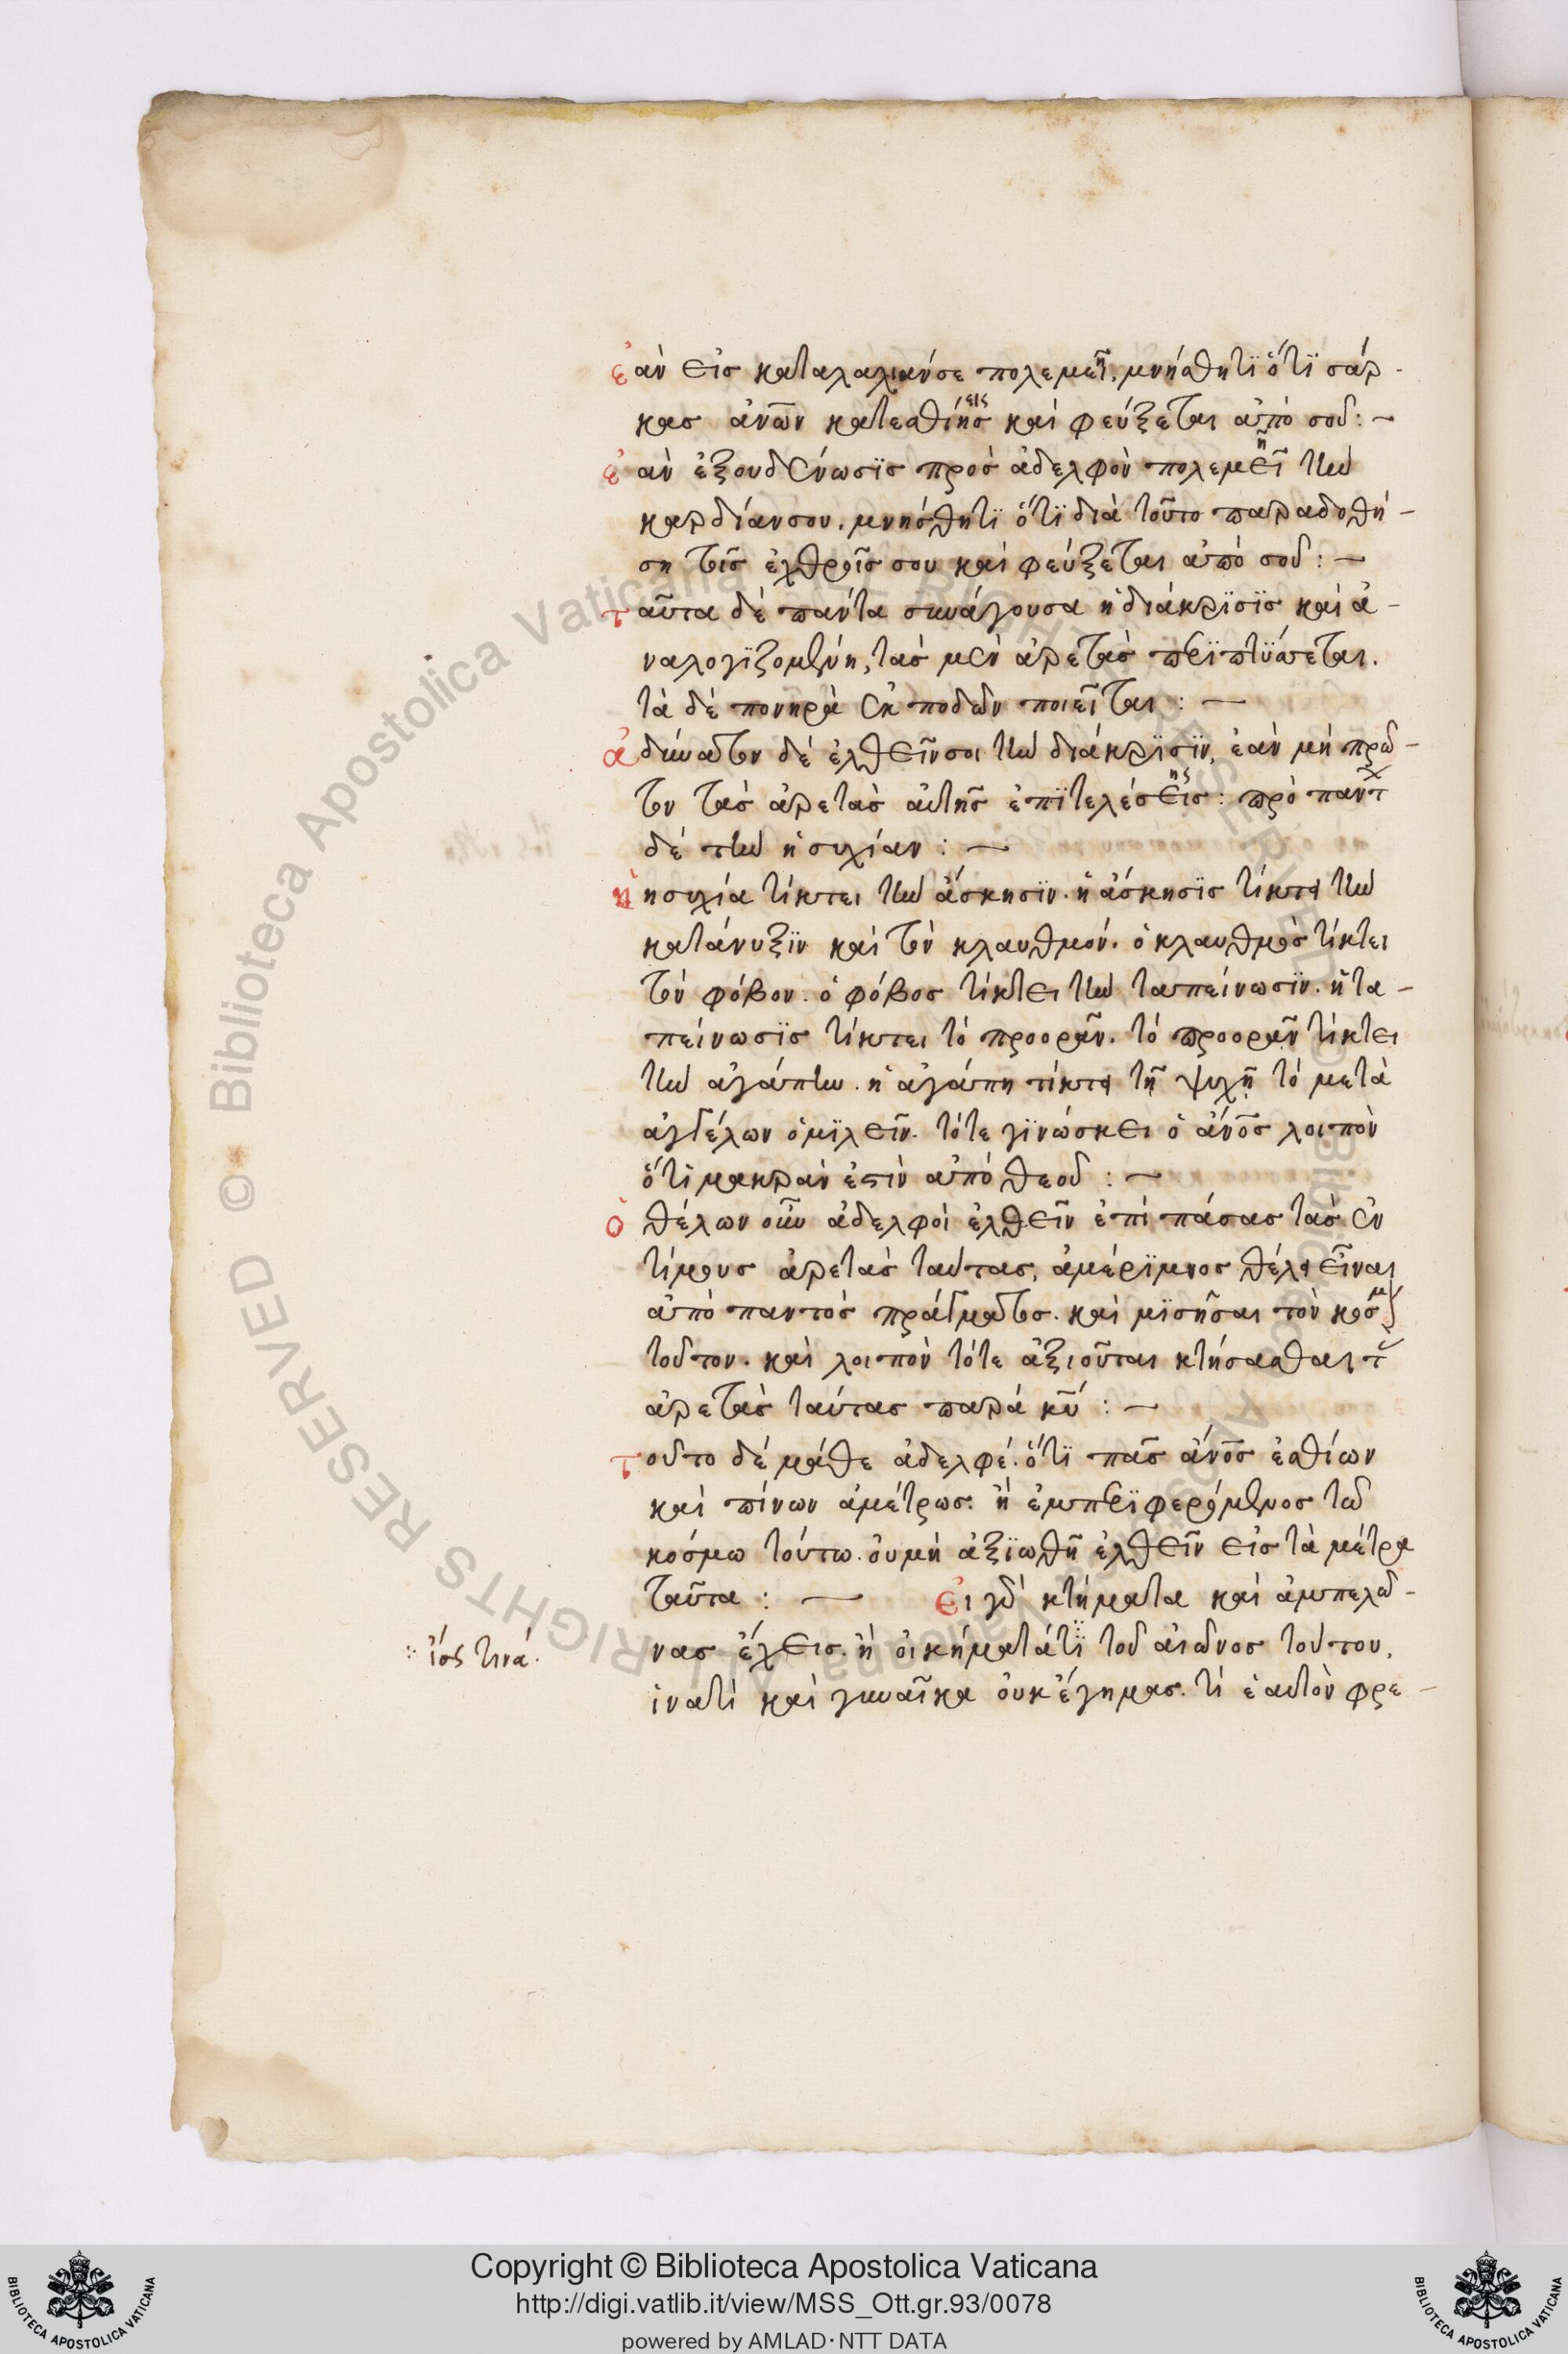 ἐὰν εἰς καταλαλιάν σε πολεμεῖ, μνήσθητϊ ὅτϊ σάρ-
κας ἀν̅ων κατεσθίῃς καὶ φεύξεται ἀπὸ σοῦ: ~
ἐὰν ἐξουδένωσϊς πρὸς ἀδελφὸν πολεμεῖ τὴν
καρδίαν σου, μνήσθητϊ ὅτϊ διὰ τοῦτο παραδοθή-
ση τοῖς ἐχθροῖς σου καὶ φεύξεται ἀπὸ σοῦ: ~
ταῦτα δὲ πάντα συνάγουσα ἡ διάκρϊσϊς καὶ ἀ-
ναλογϊζομένη, τὰς μὲν ἀρετὰς περϊπτύσσεται.
τὰ δὲ πονηρὰ ἐκποδὼν ποιεῖται: ~
ἀδύνατον δὲ ἐλθεῖν σοι τὴν διάκρϊσϊν, ἐὰν μὴ πρῶ-
τον τὰς ἀρετὰς αὐτῆς ἐπϊτελέσεις: πρὸ παντ
δὲ τὴν ἡσυχίαν: ~
ἡ ἡσυχία τίκτει τὴν ἄσκησϊν. ἡ ἄσκησϊς τίκτει τὴν
κατάνυξϊν καὶ τὸν κλαυθμόν. ὁ κλαυθμὸς τίκτει
τὸν φόβον. ὁ φόβος τίκτει τὴν ταπείνωσϊν. ἡ τα-
πείνωσϊς τίκτει τὸ προορᾶν. τὸ προορᾶν τίκτει
τὴν ἀγάπην. ἡ ἀγάπη τίκτει τῇ ψυχῇ τὸ μετὰ
ἀγγέλων ὁμϊλεῖν. τότε γϊνώσκει ὁ ἄν̅ος λοιπὸν
ὅτι μακράν ἐστὶν ἀπὸ θεοῦ: ~
ὁ θέλων οὖν ἀδελφοὶ ἐλθεῖν ἐπὶ πάσας τὰς ἐν
τίμους ἀρετὰς ταύτας, ἀμέρϊμνος θέλει εἶναι
ἀπὸ παντὸς πράγματος. καὶ μϊσῆσαι τὸν κοσμ
τοῦτον. καὶ λοιπὸν τότε ἀξιοῦται κτήσασθαι τ
ἀρετὰς ταύτας παρὰ κ̅υ: ~
τοῦτο δὲ μάθε ἀδελφέ. ὅτϊ πᾶς ἄν̅ος ἐσθίων
καὶ πίνων ἀμέτρως. ἢ ἐμπερϊφερόμενος τῶ
κόσμω τούτω. οὐ μὴ ἀξϊωθῆ ἐλθεῖν εἰς τὰ μέτρα
ταῦτα: ~ εἰ γὰρ κτήματα καὶ ἀμπελῶ-
νας ἔχεις. ἢ οἰκήματά τϊ τοῦ αἰῶνος τούτου,
ἱνατί καὶ γυναῖκα οὐκ ἔγημας. τί ἑαυτὸν φρε-
ἴσς τινά.
εις
ῆ
ῆ
ης
Copyright © Biblioteca Apostolica Vaticana
http://digi.vatlib.it/view/MSS_Ott.gr.93/0078
powered by AMLAD·NTT DATA
BIBLIOTECA APOSTOLICA VATICANA
BIBLIOTECA APOSTOLICA VATICANA
© Biblioteca Apostolica Vaticana ALL RIGHTS RESERVED
© Biblioteca Apostolica Vaticana ALL RIGHTS RESERVED